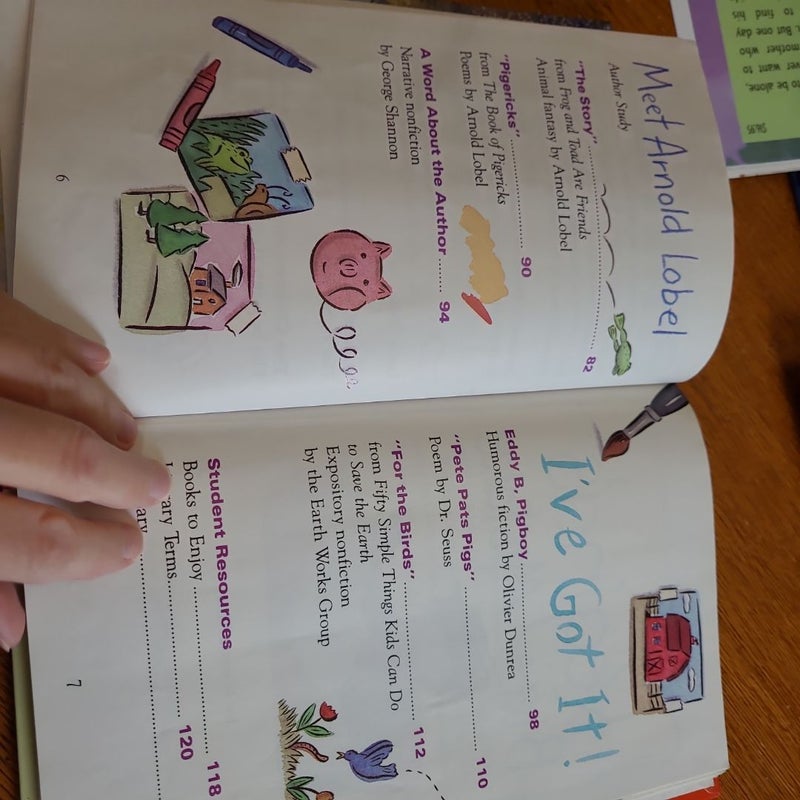 Meet Arnold Lobel
Author Study
"The Story" ........ 82
from Frog and Toad Are Friends
Animal fantasy by Arnold Lobel
"Pigericks" ........ 90
from The Book of Pigericks
Poems by Arnold Lobel
A Word About the Author ........ 94
Narrative nonfiction
by George Shannon
6
I've Got It!
Eddy B, Pigboy ........ 98
Humorous fiction by Olivier Dunrea
"Pete Pats Pigs" ........ 110
Poem by Dr. Seuss
"For the Birds" ........ 112
from Fifty Simple Things Kids Can Do
to Save the Earth
Expository nonfiction
by the Earth Works Group
Student Resources
Books to Enjoy ........ 118
ary Terms ........ 120
ary ........
7
to be alone,
ver want to
mother who
But one day
to find his